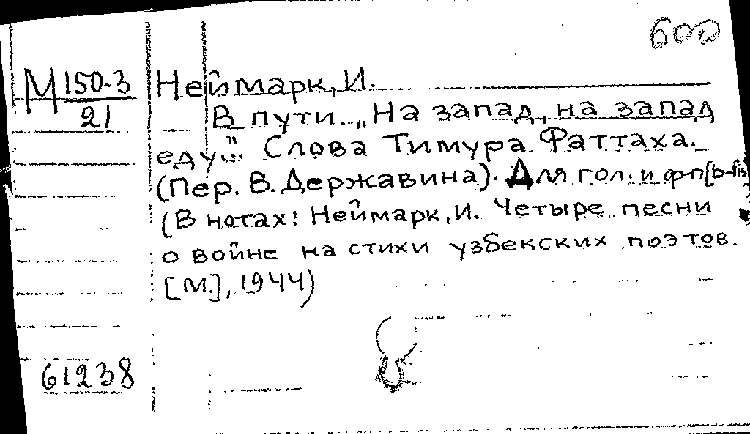 600
М 150-3 Неймарк, И.
21
В пути. „На запад, на запад
еду..." Слова Тимура Фаттаха.
(Пер. В. Державина). Для гол. и ф-п [b-fis]
(В нотах: Неймарк, И. Четыре песни
о войне на стихи узбекских поэтов.
[М], 1944)
61238